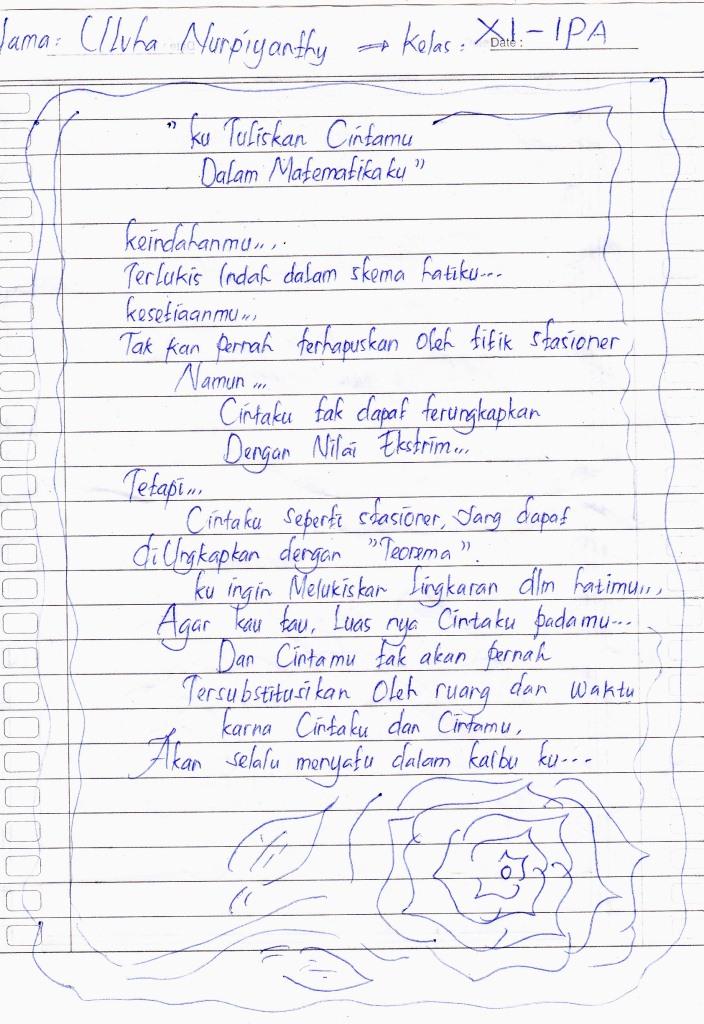 Nama: Ulvha Nurpiyanthy → Kelas : XI - IPA
Date :
" ku Tuliskan Cintamu
Dalam Matematikaku "
keindahanmu,,,.
Terlukis Indah dalam skema hatiku...
kesetiaanmu,,,
Tak kan pernah terhapuskan oleh titik stasioner
Namun ,,,
Cintaku tak dapat terungkapkan
Dengan Nilai Ekstrim,,,
Tetapi,,,
Cintaku seperti stasioner, yang dapat
diUngkapkan dengan "Teorema".
ku ingin Melukiskan lingkaran dlm hatimu,,,
Agar kau tau, Luas nya Cintaku padamu...
Dan Cintamu tak akan pernah
Tersubstitusikan Oleh ruang dan waktu
karna Cintaku dan Cintamu,
Akan selalu menyatu dalam kalbu ku...